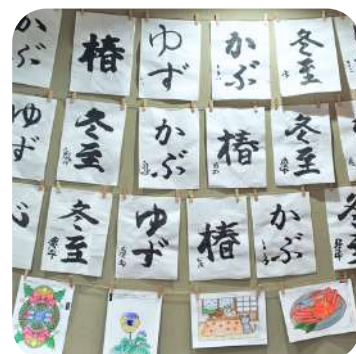 かぶ
椿
ゆず
かぶ
冬至
ゆず
冬至
かぶ
椿
冬至
冬至
ゆず
椿
かぶ
冬至